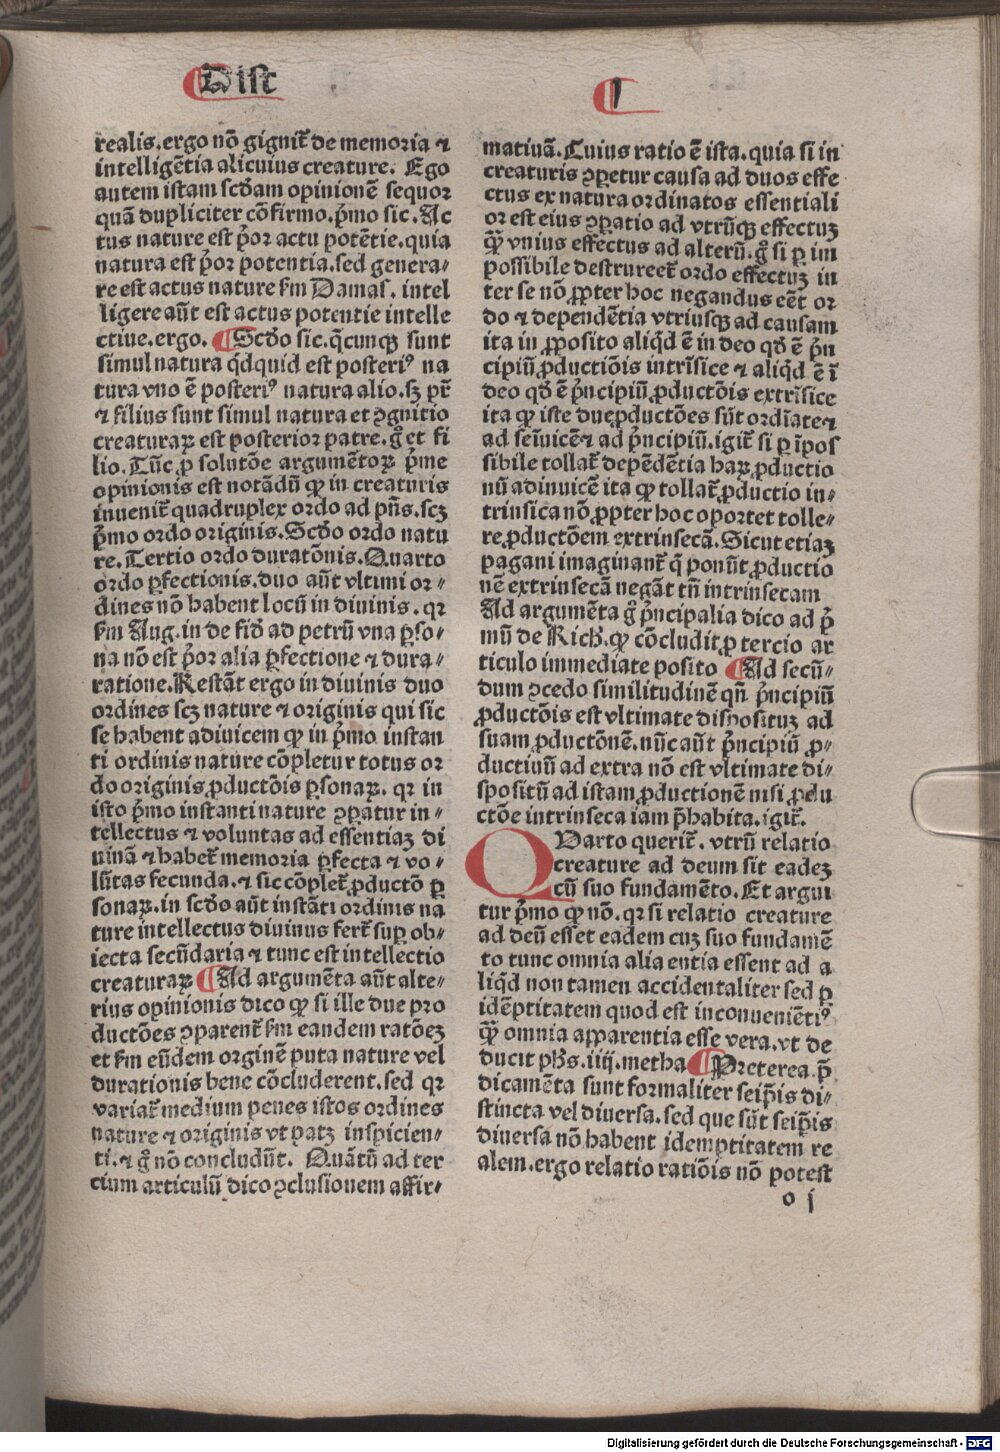 Dist
I
realis.ergo nō gignit̄ de memoria ⁊
intelligētia alicuius creature. Ego
autem istam scd̄am opinionē sequor
quā dupliciter cōfirmo.p̄mo sic. Ac
tus nature est p̄or actu potētie.quia
natura est p̄or potentia.sed genera⸗
re est actus nature s̄m Damas. intel
ligere aūt est actus potentie intelle
ctiue.ergo. Scd̄o sic.q̄cunqꝫ sunt
simul natura qd̄quid est posteriꝰ na
tura vno ē posteriꝰ natura alio.sꝫ pr̄
⁊ filius sunt simul natura et ꝯgnitio
creaturaꝝ est posterior patre.gͦ et fi
lio. Tūc ꝓ solutōe argumētoꝝ p̄me
opinionis est notādū ꝙ in creaturis
inuenit̄ quadruplex ordo ad pn̄s.scꝫ
p̄mo ordo originis. Scd̄o ordo natu
re. Tertio ordo duratōnis. Quarto
ordo ꝑfectionis.duo aūt vltimi or⸗
dines nō habent locū in diuinis. qr
s̄m Aug. in de fid̄ ad petrū vna ꝑso⸗
na nō est p̄or alia ꝑfectione ⁊ dura⸗
ratione. Restāt ergo in diuinis duo
ordines scꝫ nature ⁊ originis qui sic
se habent adiuicem ꝙ in p̄mo instan
ti ordinis nature cōpletur totus or
do originis ꝓductōis ꝑsonaꝝ. qr in
isto p̄mo instanti nature ꝯꝑatur in⸗
tellectus ⁊ voluntas ad essentiaꝫ di
uinā ⁊ habet̄ memoria ꝑfecta ⁊ vo⸗
lūtas fecunda.⁊ sic cōplet̄ ꝓductō ꝑ
sonaꝝ.in scd̄o aūt instāti ordinis na
ture intellectus diuinus fert̄ suꝑ ob⸗
iecta secūdaria ⁊ tunc est intellectio
creaturaꝝ Ad argumēta aūt alte⸗
rius opinionis dico ꝙ si ille due pro
ductōes ꝯparent̄ s̄m eandem ratōeꝫ
et s̄m eūdem orginē puta nature vel
durationis bene cōcluderent.sed qr
variat̄ medium penes istos ordines
nature ⁊ originis vt patꝫ inspicien⸗
ti.⁊ gͦ nō concludūt. Quātū ad ter
cium articulū dico ꝯclusionem affir⸗
matiuā. Cuius ratio ē ista.quia si in
creaturis ꝯꝑetur causa ad duos effe
ctus ex natura ordinatos essentiali
or est eius ꝯꝑatio ad vtrūqꝫ effectuꝫ
qͣꝫ vnius effectus ad alterū.gͦ si ꝑ im
possibile destrueret̄ ordo effectuꝫ in
ter se nō ꝓpter hoc negandus eēt or
do ⁊ dependētia vtriusqꝫ ad causam
ita in ꝓposito aliqd̄ ē in deo qd̄ ē p̄n
cipiū ꝓductiōis intrīsice ⁊ aliqd̄ ē ī
deo qd̄ ē p̄ncipiū ꝓductōis extrīsice
ita ꝙ iste due ꝓductōes sūt ordīate ⁊
ad seīuicē ⁊ ad p̄ncipiū.igit̄ si ꝑ īpos
sibile tollat̄ depēdētia haꝝ ꝓductio
nū adinuicē ita ꝙ tollat̄ ꝓductio in⸗
trinsica nō ꝓpter hoc oportet tolle⸗
re ꝓductōem extrinsecā. Sicut etiaꝫ
pagani imaginant̄ q̄ ponūt ꝓductio
nē extrinsecā negāt tn̄ intrinsecam
Ad argumēta gͦ p̄ncipalia dico ad p̄
mū de Rich.ꝙ cōcludit ꝓ tercio ar
ticulo immediate posito Ad secū⸗
dum ꝯcedo similitudinē qn̄ p̄ncipiū
ꝓductōis est vltimate dispositꝫ ad
suam ꝓductōnē.nūc aūt p̄ncipiū ꝓ⸗
ductiuū ad extra nō est vltimate di⸗
spositū ad istam ꝓductionē nisi ꝓdu
ctōe intrinseca iam p̄habita.igit̄.
Quarto querit̄. vtrū relatio
creature ad deum sit eadeꝫ
cū suo fundamēto. Et argui
tur p̄mo ꝙ nō. qr si relatio creature
ad deū esset eadem cuꝫ suo fundamē
to tunc omnia alia entia essent ad a
liqd̄ non tamen accidentaliter sed ꝑ
idēptitatem quod est inconueniētiꝰ
qͣꝫ omnia apparentia esse vera.vt de
ducit ph̄s.iiij.metha Preterea.p̄
dicamēta sunt formaliter seip̄is di⸗
stincta vel diuersa.sed que sūt seip̄is
diuersa nō habent idemptitatem re
alem.ergo relatio ratiōis nō potest
o j
Digitalisierung gefördert durch die Deutsche Forschungsgemeinschaft - DFG